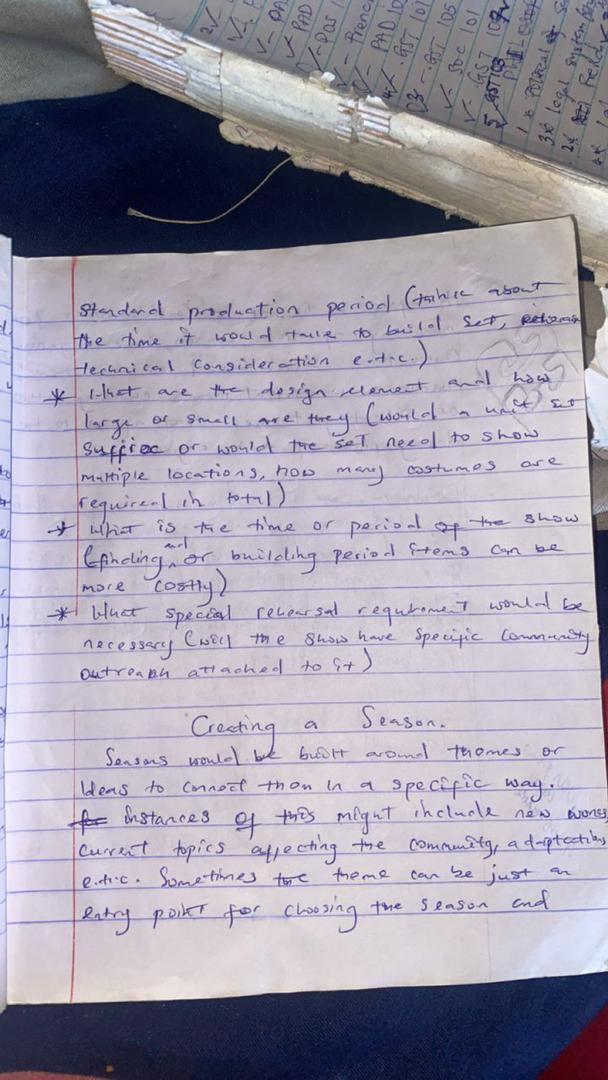 PAD
PAD 10
GST 101
GST 105
Soc 101
GST 107
Standard production period (think about
the time it would take to build set, rehearsal
technical consideration e.t.c.)
* What are the design element and how
large or small are they (would a unit set
suffice or would the set need to show
multiple locations, how many costumes are
required in total)
* What is the time or period of the show
(finding and or building period items can be
more costly)
* What special rehearsal requirement would be
necessary (will the show have specific community
outreach attached to it)
Creating a Season.
Seasons would be built around themes or
Ideas to connect them in a specific way.
for instances of this might include new works,
current topics affecting the community, adaptations
e.t.c. Sometimes the theme can be just an
entry point for choosing the season and